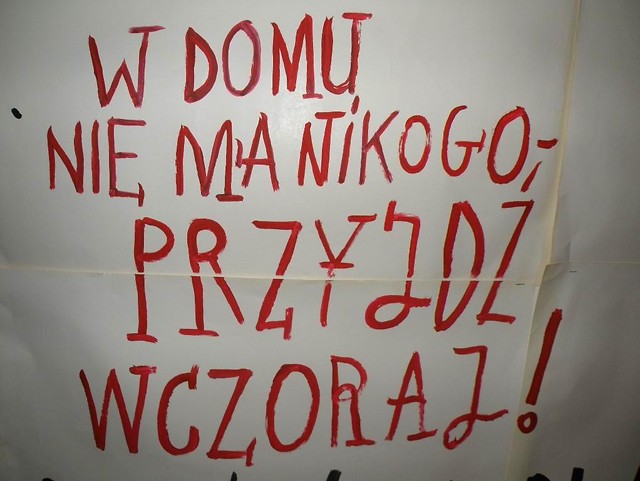 W DOMU
NIE MA NIKOGO,-
PRZYJDZ
WCZORAJ!